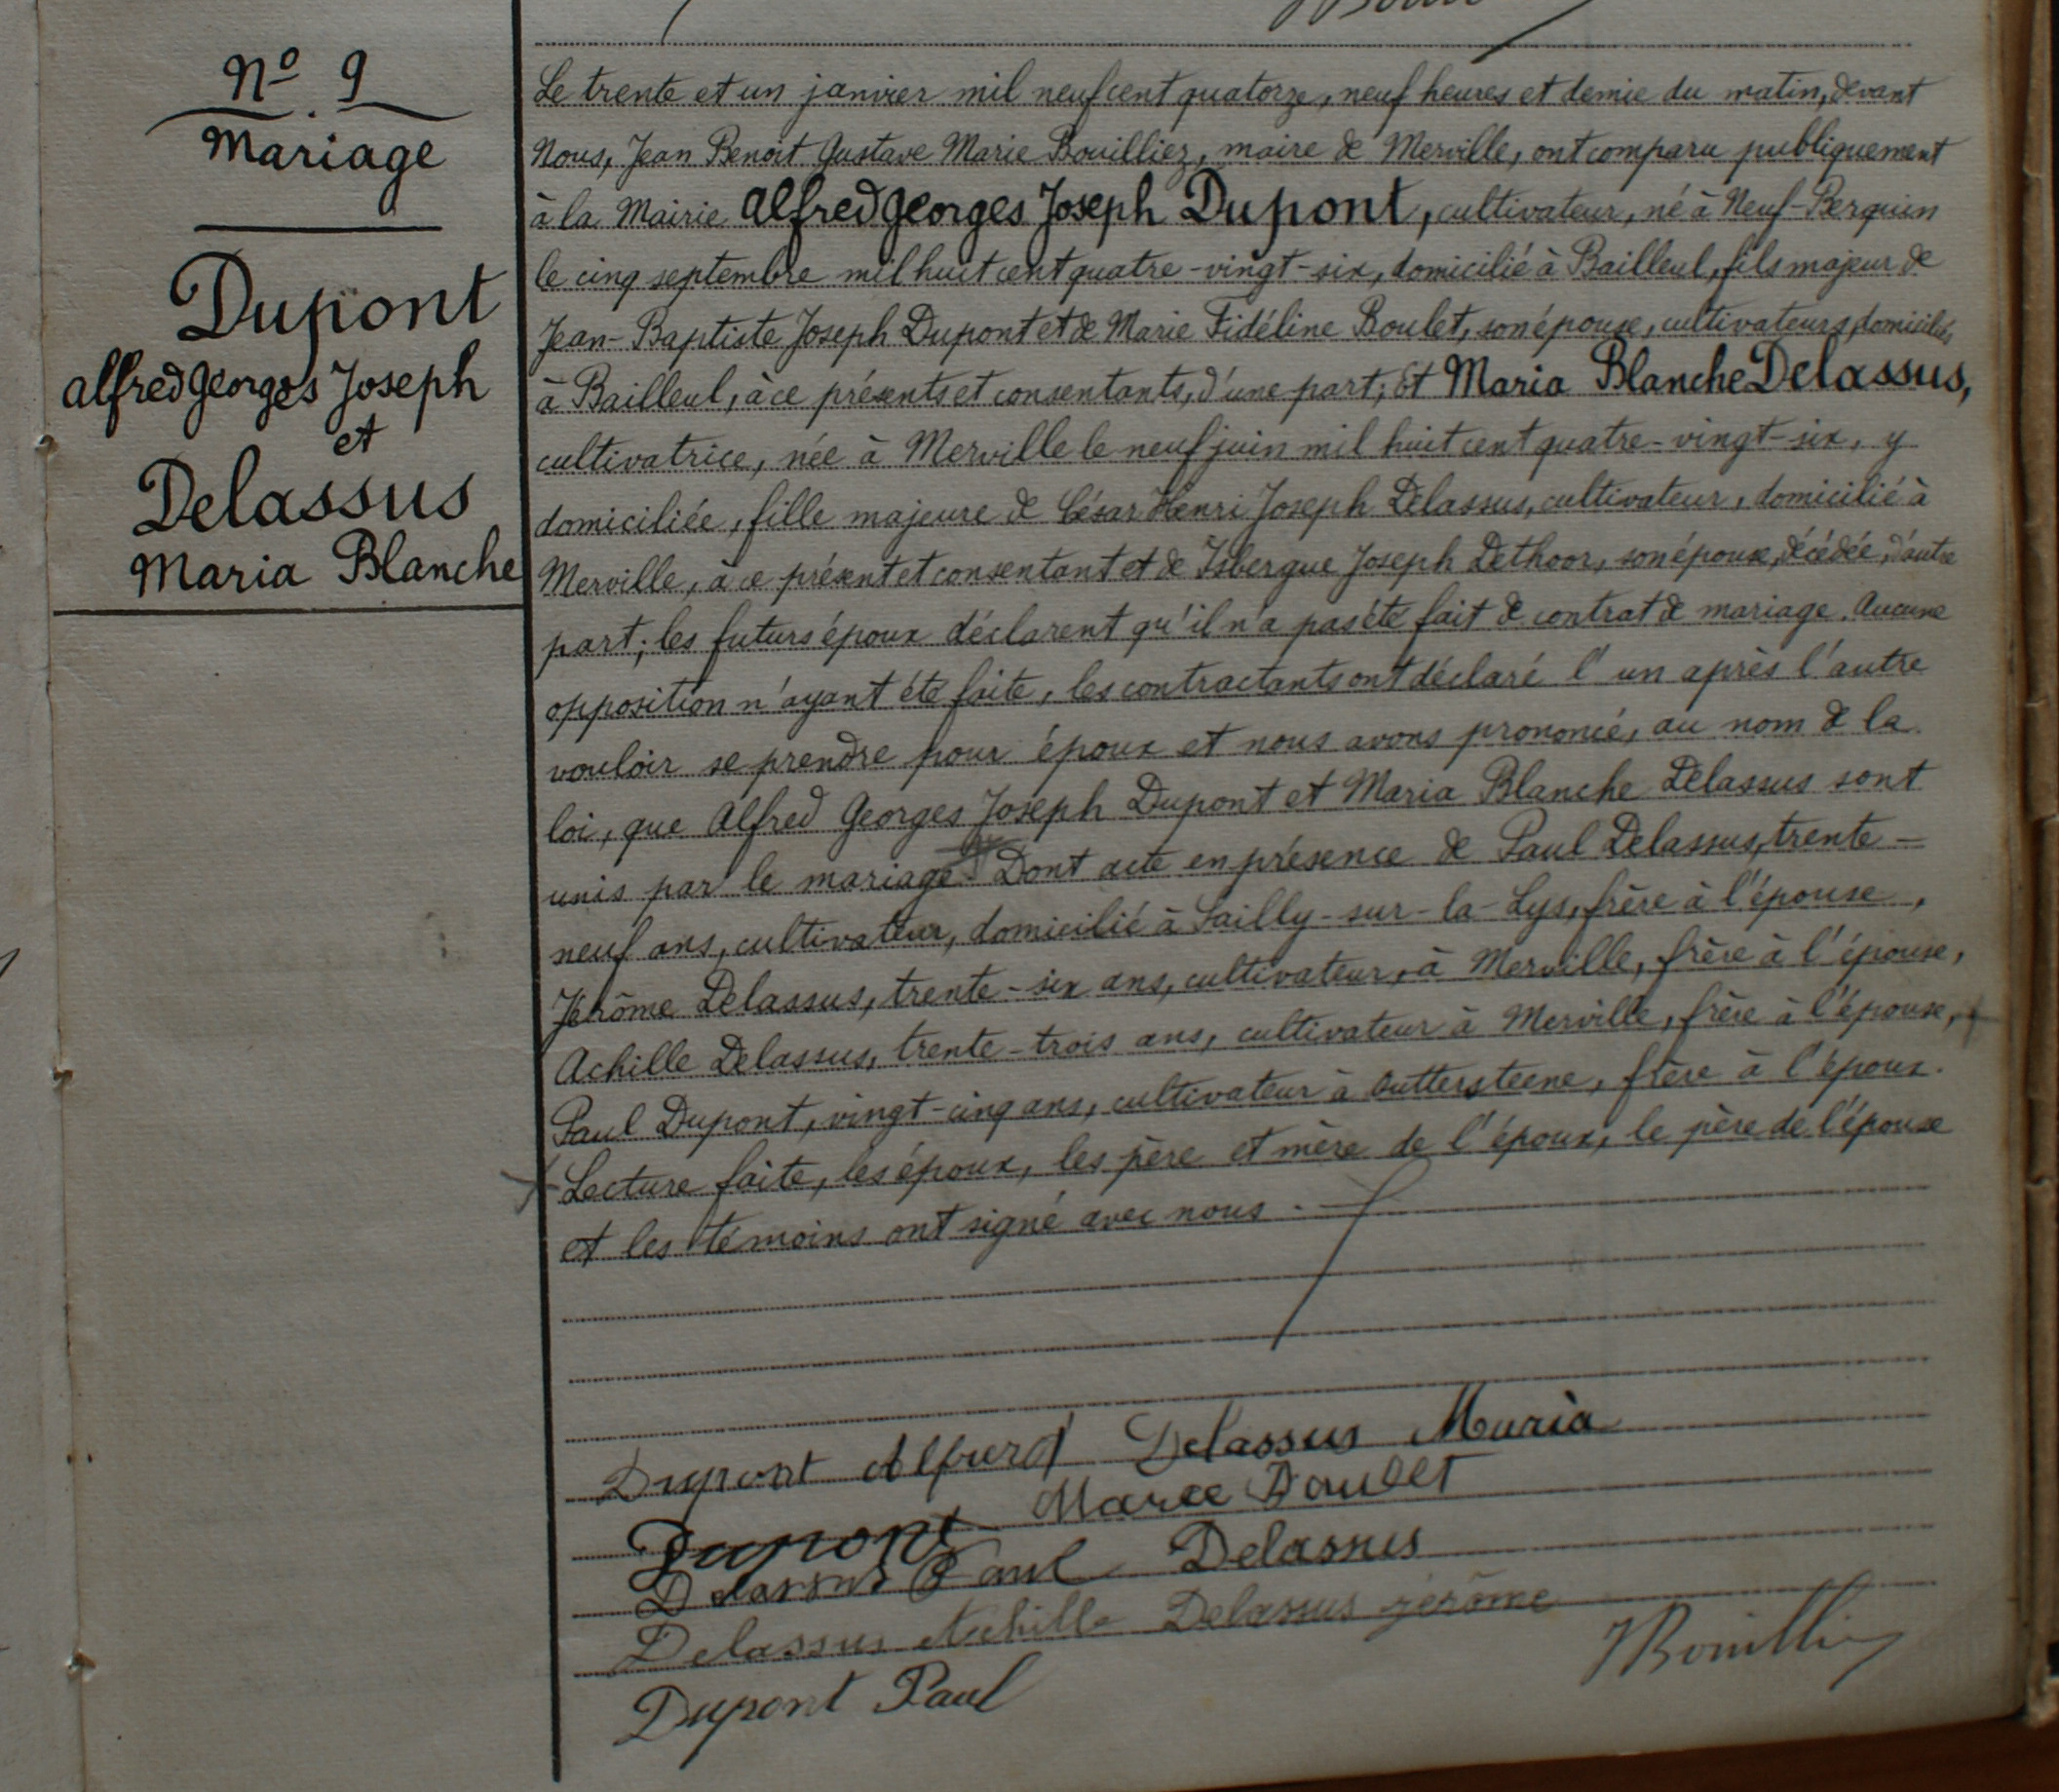 Nº 9
Mariage
Dupont
Alfred Georges Joseph
et
Delassus
Maria Blanche
Le trente et un janvier mil neuf cent quatorze, neuf heures et demie du matin, devant
Nous, Jean Benoit Gustave Marie Bouilliez, maire de Merville, ont comparu publiquement
à la Mairie Alfred Georges Joseph Dupont, cultivateur, né à Neuf-Berquin
le cinq septembre mil huit cent quatre-vingt-six, domicilié à Bailleul, fils majeur de
Jean-Baptiste Joseph Dupont et de Marie Fidéline Boulet, son épouse, cultivateurs, domiciliés
à Bailleul, à ce présents et consentants, d'une part; Et Maria Blanche Delassus,
cultivatrice, née à Merville le neuf juin mil huit cent quatre-vingt-six, y
domiciliée, fille majeure de César Henri Joseph Delassus, cultivateur, domicilié à
Merville, à ce présent et consentant et de Isbergue Joseph Dethoor, son épouse, décédée, d'autre
part; les futurs époux déclarent qu'il n'a pas été fait de contrat de mariage. Aucune
opposition n'ayant été faite, les contractants ont déclaré l'un après l'autre
vouloir se prendre pour époux et nous avons prononcé, au nom de la
loi, que Alfred Georges Joseph Dupont et Maria Blanche Delassus sont
unis par le mariage. Dont acte en présence de Paul Delassus, trente-
neuf ans, cultivateur, domicilié à Sailly-sur-la-Lys, frère à l'épouse,
Jérôme Delassus, trente-six ans, cultivateur, à Merville, frère à l'épouse,
Achille Delassus, trente-trois ans, cultivateur à Merville, frère à l'épouse,
Paul Dupont, vingt-cinq ans, cultivateur à Outtersteene, frère à l'époux.
Lecture faite, les époux, les père et mère de l'époux, le père de l'épouse
et les témoins ont signé avec nous.
Dupont Alfred Delassus Maria
Dupont Marie Boulet
Delassus Paul Delassus
Delassus Achille Delassus jérôme
JBouilliez
Dupont Paul